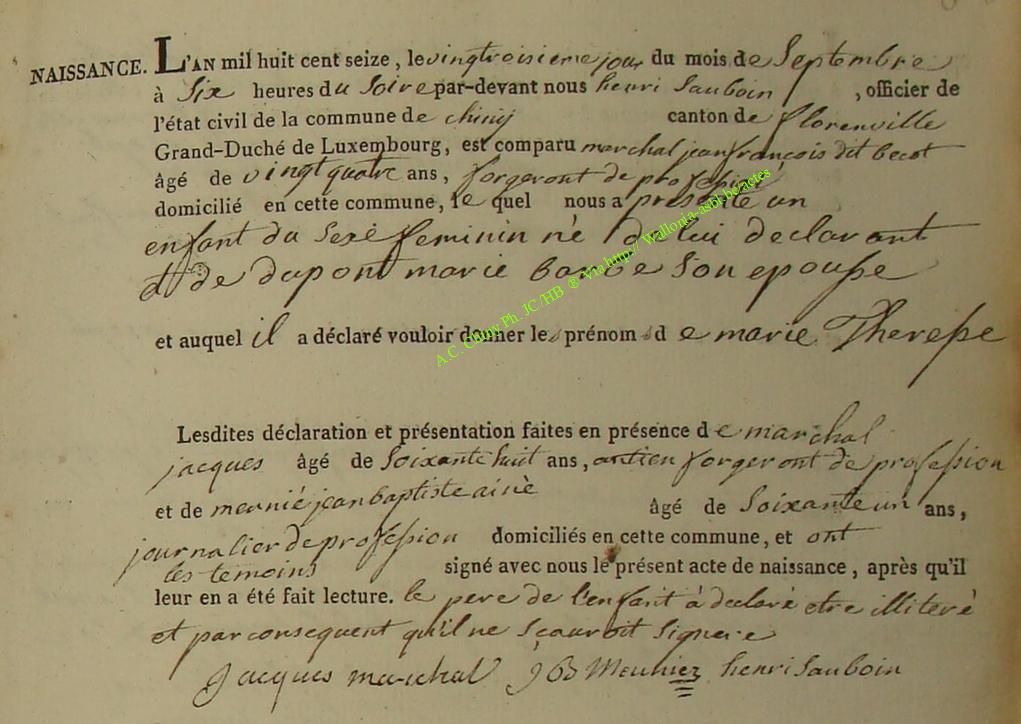 NAISSANCE. L'AN mil huit cent seize, le vingtroisieme jour du mois de Septembre
à Six heures du Soire par-devant nous henri Sauboin, officier de
l'état civil de la commune de chiny canton de florenville
Grand-Duché de Luxembourg, est comparu marchal jean françois dit becot
âgé de vingt quatre ans, forgeront de profession
domicilié en cette commune, le quel nous a presenté un
enfant du Sexe feminin né de lui declarant
et de dupont marie barbe Son epouse
et auquel il a déclaré vouloir donner les prénom d e marie Therese
Lesdites déclaration et présentation faites en présence d e marchal
jacques âgé de Soixante huit ans, antien forgeront de profession
et de meunié jean baptiste ainé âgé de Soixante un ans,
journalier de profession domiciliés en cette commune, et ont
les temoins signé avec nous le présent acte de naissance, après qu'il
leur en a été fait lecture. le pere de l'enfant à declaré etre illiteré
et par consequent qu'il ne Scauroit Signere
Jacques marchal J B Meuniez henri Sauboin
A.C. Chiny Ph. JC/HB ® Via http://Wallonia-asbl.be/actes